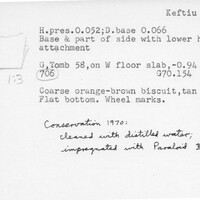 Keftiu
H.pres.0.052;D.base 0.066
Base & part of side with lower
attachment
G,Tomb 58,on W floor slab,-0.94
706 G70.154
1:3
Coarse orange-brown biscuit,tan
Flat bottom. Wheel marks.
Conservation 1970:
cleaned with distilled water,
impregnated with Paraloid B